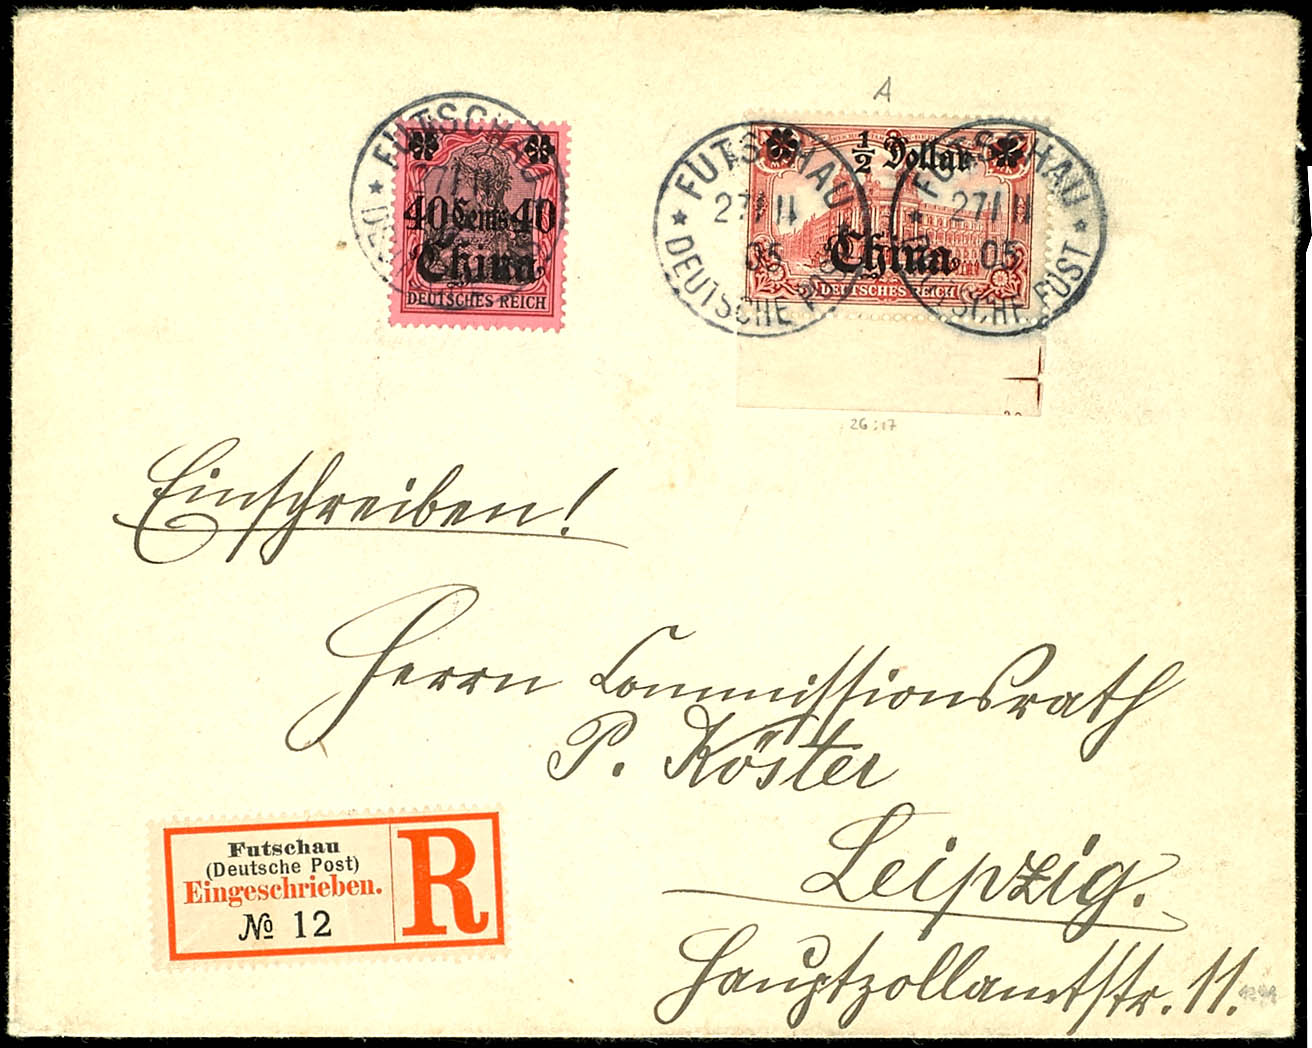 A
FUTSCHAU
27/11
DE
40 Cents 40
China
DEUTSCHES REICH
FUTSCHAU
27/11
05
DEUTSCHE POST
1/2 Dollar
China
DEUTSCHES REICH
FUTSCHAU
27/11
05
DEUTSCHE POST
26:17
Einschreiben!
Herrn Commissionsrath
P. Köster
Leipzig.
Hauptzollamtstr. 11.
Futschau
(Deutsche Post)
Eingeschrieben.
№ 12
R